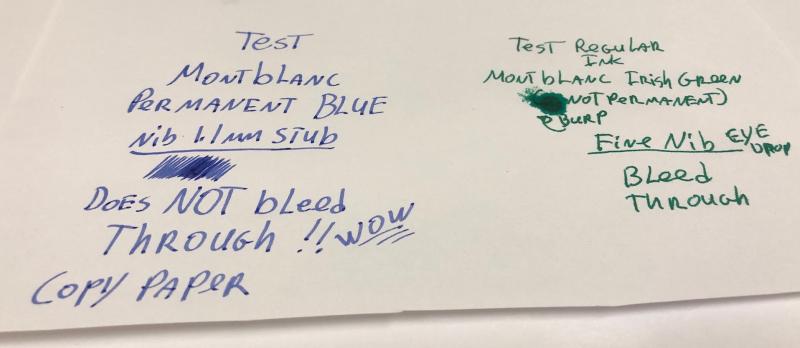 Test
Montblanc
Permanent Blue
Nib 1.1mm Stub
Does NOT bleed
Through !! WOW
Copy Paper
Test Regular
Ink
Montblanc Irish Green
Not Permanent)
Burp
Fine Nib Eye
Drop
Bleed
Through